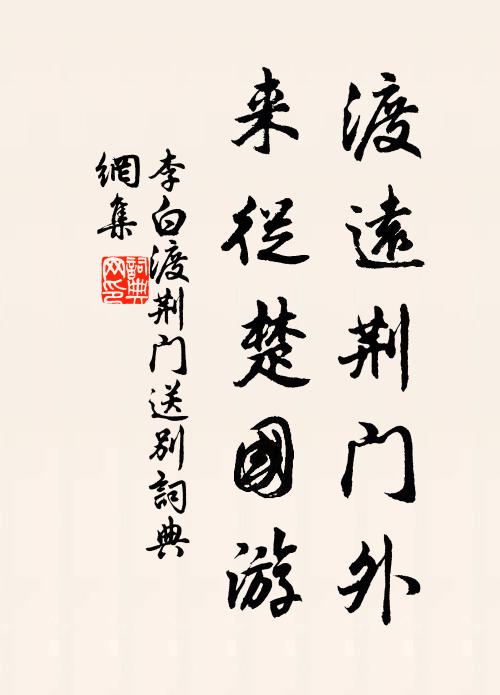 渡遠荆门外
来從楚國游
李白渡荆门送别詞典
網集
詞典網印